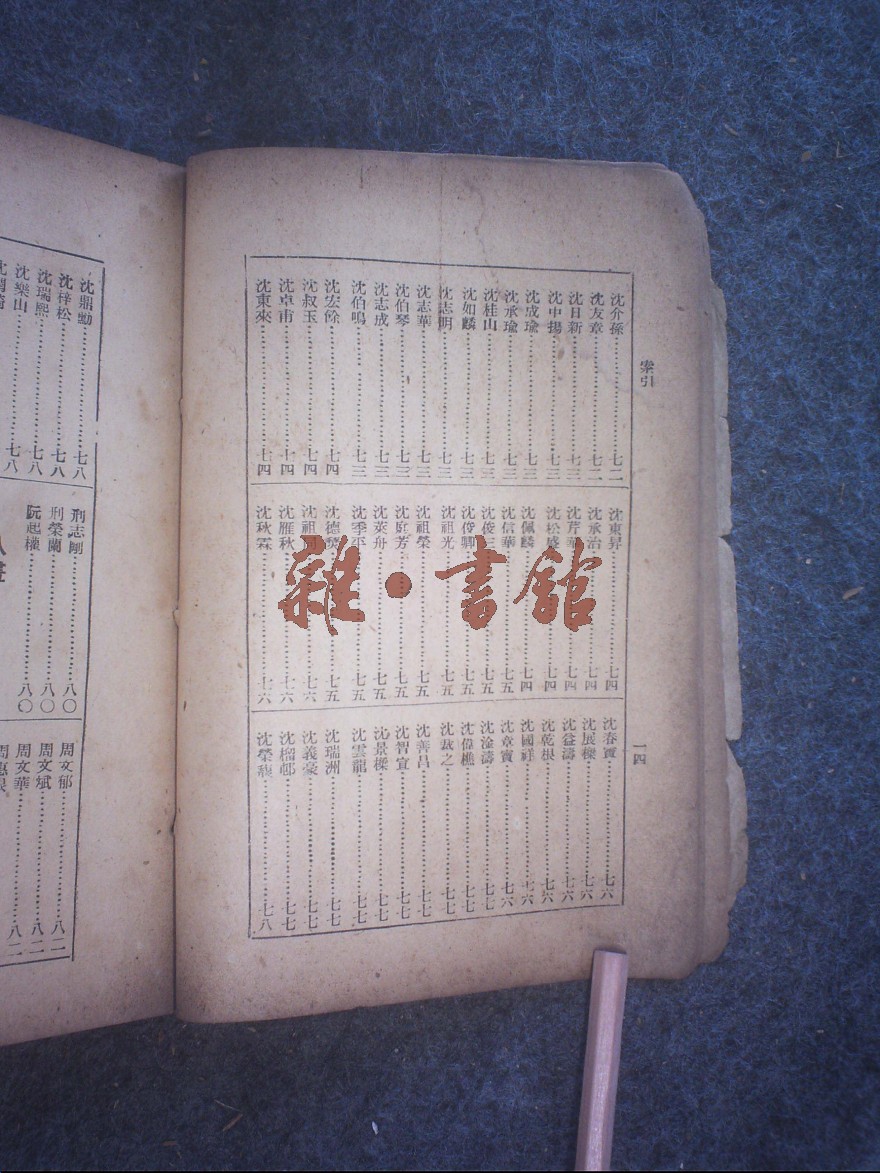 索引
一四
沈介孫……七二
沈友章……七二
沈日新……七三
沈中揚……七三
沈成瑜……七三
沈承瑜……七三
沈桂山……七三
沈如麟……七三
沈志明……七三
沈志華……七三
沈伯琴……七三
沈志成……七三
沈伯鳴……七三
沈宏餘……七四
沈叔玉……七四
沈卓甫……七四
沈東來……七四
沈東昇……七四
沈承治……七四
沈芹華……七四
沈松盛……七四
沈佩麟……七四
沈信華……七五
沈俊……七五
沈俊卿……七五
沈祖光……七五
沈祖榮……七五
沈庭芳……七五
沈萊舟……七五
沈季平……七五
沈德……七五
沈祖……七六
沈雁秋……七六
沈秋霖……七六
沈春寶……七六
沈展樑……七六
沈益濤……七六
沈乾根……七六
沈國祥……七六
沈章寶……七六
沈淦濤……七七
沈偉樵……七七
沈裁之……七七
沈善昌……七七
沈智宣……七七
沈景樑……七七
沈雲龍……七七
沈瑞洲……七七
沈義豪……七七
沈榴邨……七七
沈榮馥……七八
沈鼎勳……七八
沈梓松……七八
沈瑞熙……七八
沈樂山……七八
刑志剛……八〇
刑榮蘭……八〇
阮起權……八〇
周文郁……八二
周文斌……八二
周文華……八二
雜·書館